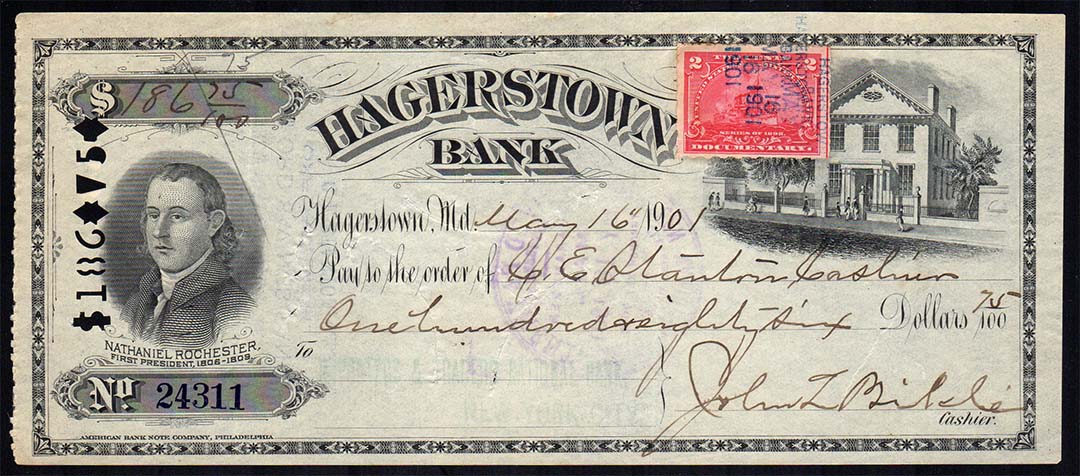 75
$186 75/100
HAGERSTOWN
BANK
2 2
SERIES OF 1898
DOCUMENTARY.
MAY
16
1901
$186♦▼5♦
Hagerstown, Md. May 16" 1901
Pay to the order of C E Stanton, Cashier
One hundred & eighty six Dollars 75/100
NATHANIEL ROCHESTER,
FIRST PRESIDENT, 1806-1809
To
No 24311
John L Bikle
Cashier.
AMERICAN BANK NOTE COMPANY, PHILADELPHIA